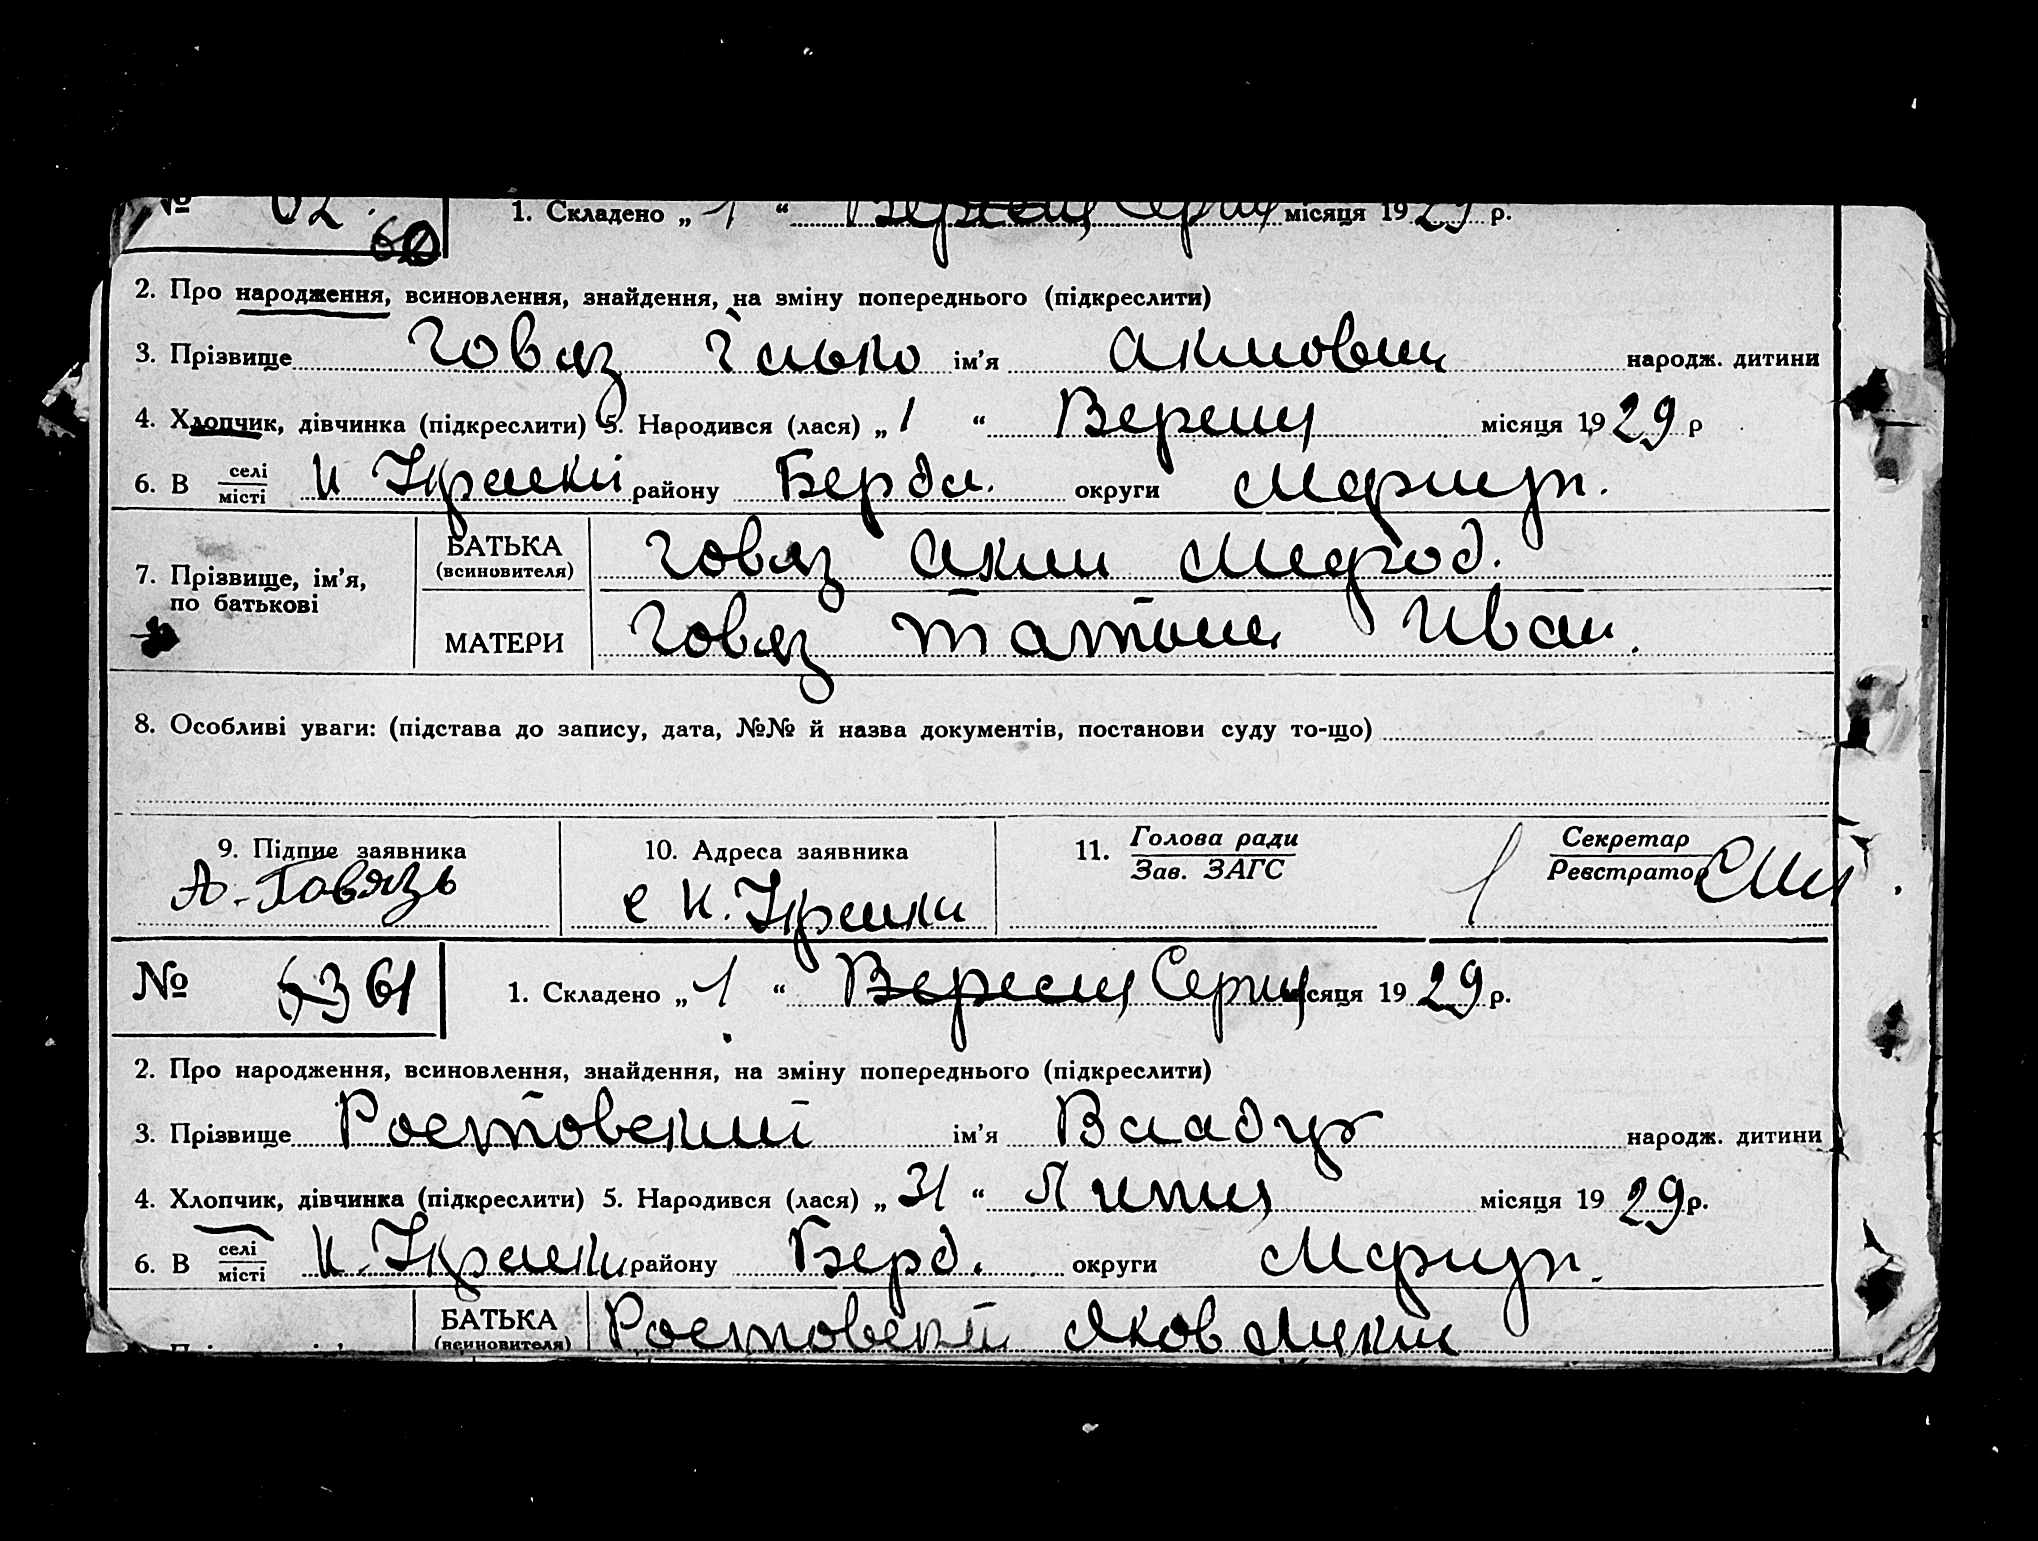 № 62. 60 1. Складено „ 1 “ Вересня Серпня місяця 1929 р.
2. Про народження, всиновлення, знайдення, на зміну попереднього (підкреслити)
3. Прізвище Говяз Ілько ім'я Акимович народж. дитини
4. Хлопчик, дівчинка (підкреслити) 5. Народився (лася) „ 1 “ Вересня місяця 1929 р
6. В селі місті району Бердя. округи Мариуп.
7. Прізвище, ім'я, по батькові
БАТЬКА (всиновителя) Говяз Аким Мефод.
МАТЕРИ Говяз Татьяна Иван.
8. Особливі уваги: (підстава до запису, дата, №№ й назва документів, постанови суду то-що)
9. Підпис заявника 10. Адреса заявника 11. Голова ради Зав. ЗАГС Секретар Реєстратор
А. Говязь
№ 63 61 1. Складено „ 1 “ Вересня Серпня місяця 1929 р.
2. Про народження, всиновлення, знайдення, на зміну попереднього (підкреслити)
3. Прізвище Ростовський ім'я народж. дитини
4. Хлопчик, дівчинка (підкреслити) 5. Народився (лася) „ 31 “ Липня місяця 1929 р.
6. В селі місті району Берд. округи Мариуп.
БАТЬКА (всиновителя) Ростовский Яков